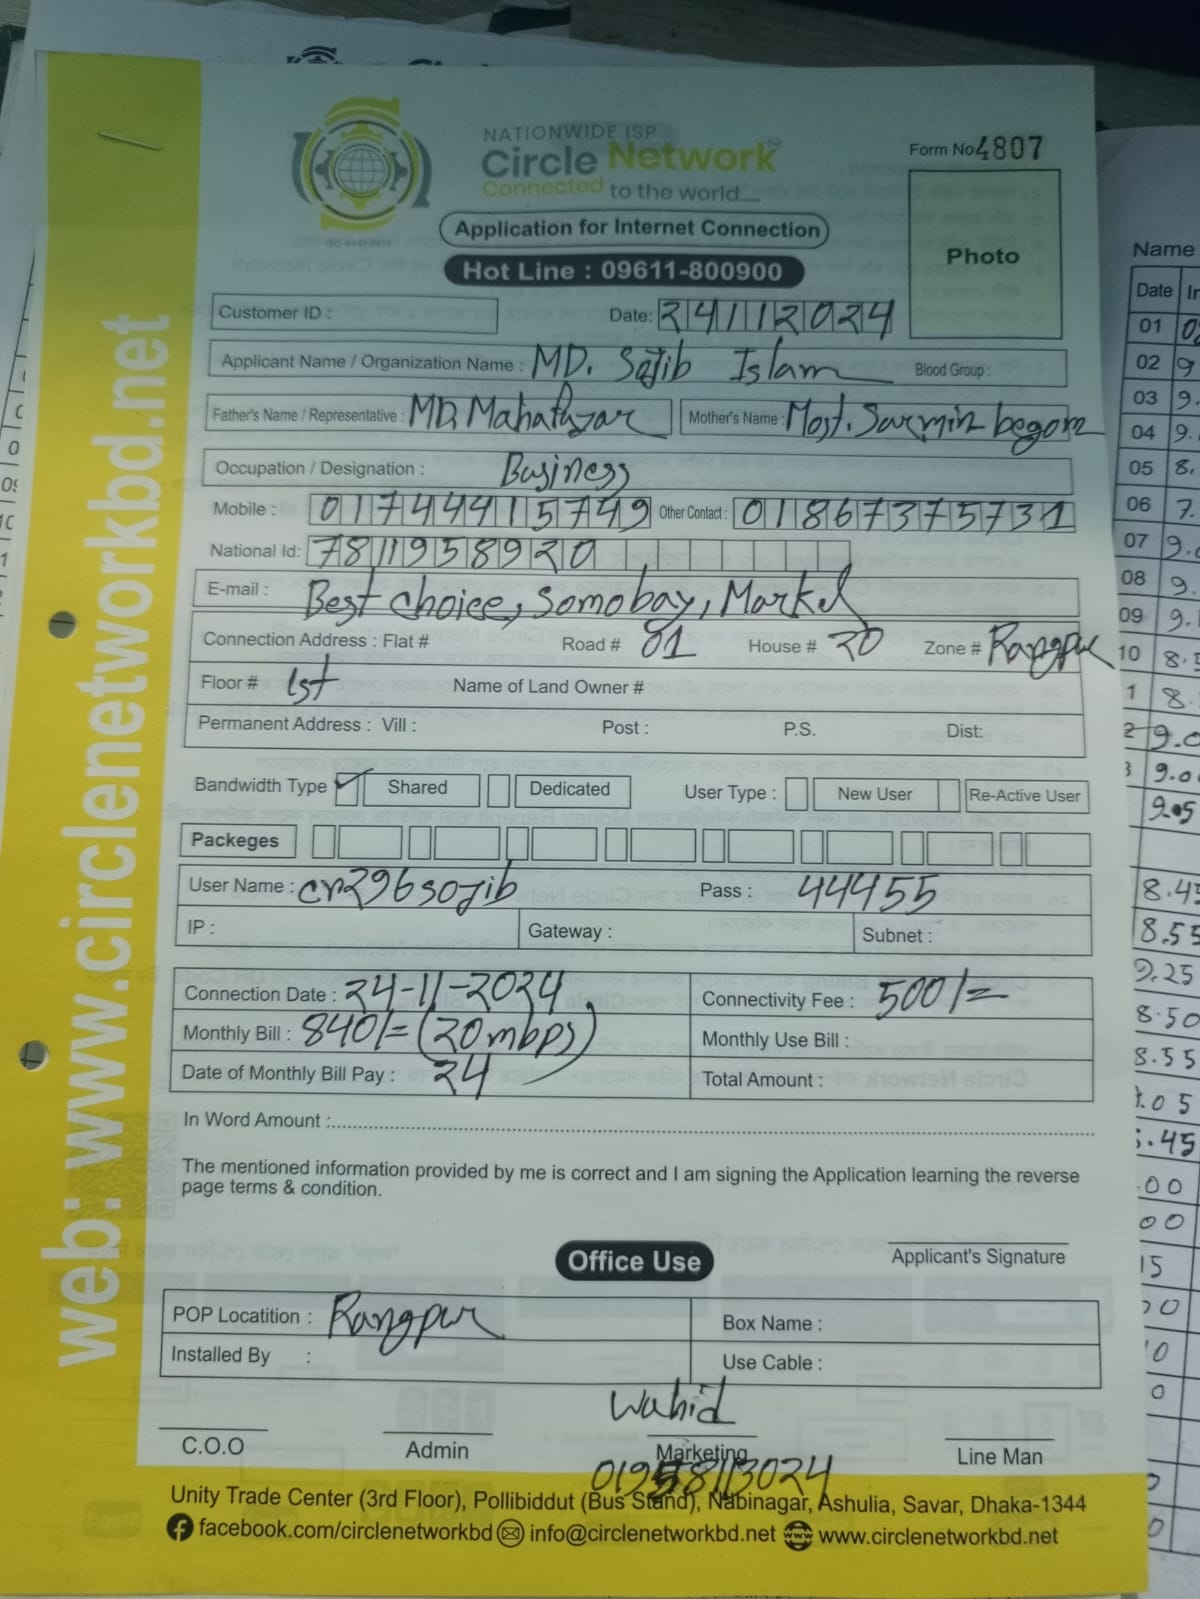 NATIONWIDE ISP
Circle Network
Connected to the world.....
Form No 4807
ISO 9001:2015
Application for Internet Connection
Hot Line : 09611-800900
Photo
Customer ID : Date: 24112024
Applicant Name / Organization Name : MD. Sajib Islam Blood Group :
Father's Name / Representative : MD. Mahafuzar Mother's Name : Most. Sarmin begom
Occupation / Designation : Business
Mobile : 01744415749 Other Contact : 01867375731
National Id: 7811958920
E-mail : Best choice, Somobay, Market
Connection Address : Flat # Road # 01 House # 20 Zone # Rangpur
Floor # 1st Name of Land Owner #
Permanent Address : Vill : Post : P.S. Dist:
Bandwidth Type Shared Dedicated User Type : New User Re-Active User
Packeges
User Name : cn296sojib Pass : 44455
IP : Gateway : Subnet :
Connection Date : 24-11-2024 Connectivity Fee : 500/=
Monthly Bill : 840/= (20mbps) Monthly Use Bill :
Date of Monthly Bill Pay : 24 Total Amount :
In Word Amount :
The mentioned information provided by me is correct and I am signing the Application learning the reverse
page terms & condition.
Applicant's Signature
Office Use
POP Locatition : Rangpur Box Name :
Installed By : Use Cable :
Wahid
C.O.O Admin Marketing Line Man
Unity Trade Center (3rd Floor), Pollibiddut (Bus Stand), Nabinagar, Ashulia, Savar, Dhaka-1344
facebook.com/circlenetworkbd info@circlenetworkbd.net www.circlenetworkbd.net
web: www.circlenetworkbd.net
Name
Date
01
02 9
03 9.
04 9.
05 8.
06 7.
07 9.0
08 9.
09 9.1
10 8.5
1 8.
2 9.0
3 9.0
9.05
8.45
8.55
9.25
8.50
8.55
.05
.45
.00
00
15
0
10
0
0
0